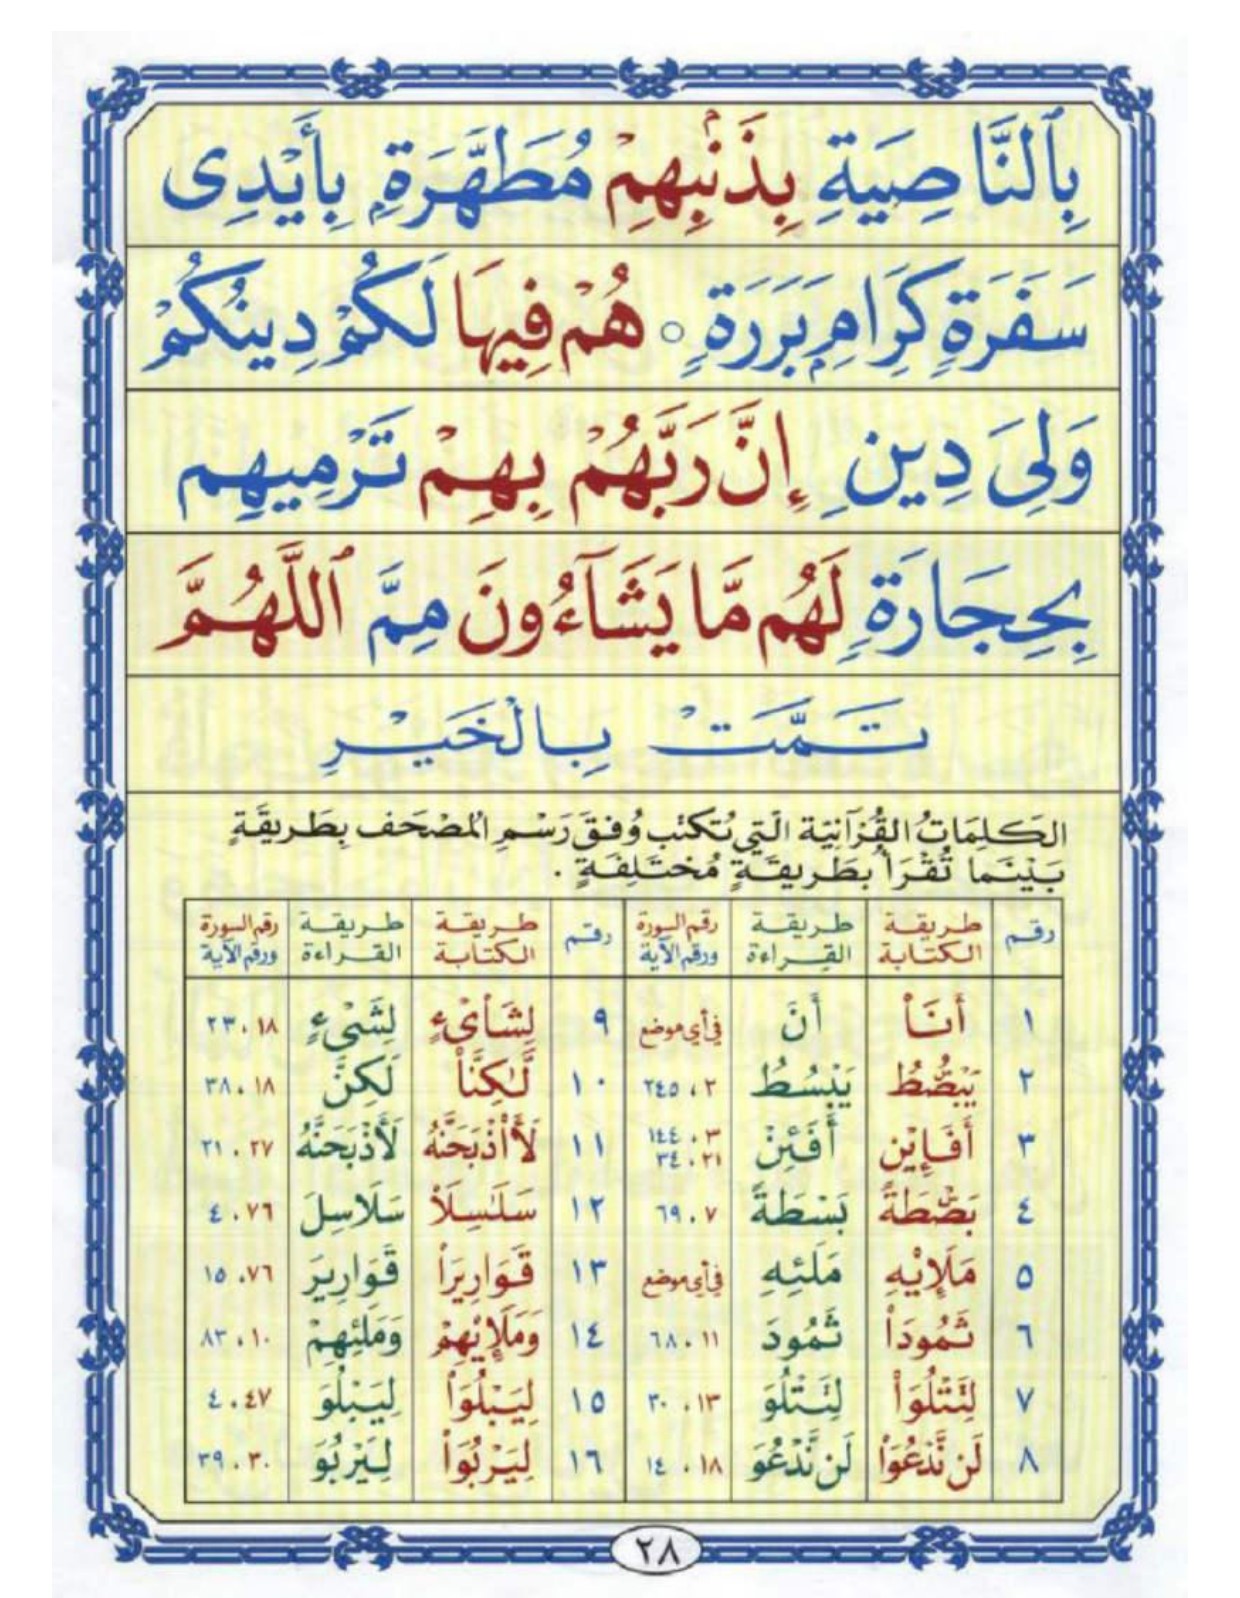 بِٱلنَّاصِيَةِ بِذَنۢبِهِمْ مُطَهَّرَةٍۭ بِأَيْدِى
سَفَرَةٍ كِرَامٍۭ بَرَرَةٍ ○ هُمْ فِيهَا لَكُمْ دِينُكُمْ
وَلِىَ دِينِ إِنَّ رَبَّهُمْ بِهِمْ تَرْمِيهِم
بِحِجَارَةٍ لَهُم مَّا يَشَآءُونَ مِمَّ ٱللَّهُمَّ
تَمَّتْ بِالْخَيْرِ
الكَلِمَاتُ القُرْآنِيَّة الَّتِي تُكتَبُ وُفقَ رَسْمِ المُصْحَف بِطَرِيقَةٍ
بَيْنَمَا تُقْرَأُ بِطَرِيقَةٍ مُخْتَلِفَةٍ .
رقم طريقة الكتابة طريقة القراءة رقم السورة ورقم الآية رقم طريقة الكتابة طريقة القراءة رقم السورة ورقم الآية
١ أَنَا۠ أَنَ في أي موضع ٩ لِشَا۟ىْءٍ لِشَىْءٍ ١٨، ٢٣
٢ يَبْصُۜطُ يَبْسُطُ ٢، ٢٤٥ ١٠ لَّٰكِنَّا۠ لَكِنَّ ١٨، ٣٨
٣ أَفَإِي۟ن أَفَئِنْ ٣، ١٤٤ ٢١، ٣٤ ١١ لَأَا۟ذْبَحَنَّهُ لَأَذْبَحَنَّهُ ٢٧، ٢١
٤ بَصْۜطَةً بَسْطَةً ٧، ٦٩ ١٢ سَلَٰسِلَا۟ سَلَاسِلَ ٧٦، ٤
٥ مَلَإِي۟هِ مَلَئِهِ في أي موضع ١٣ قَوَارِيرَا۟ قَوَارِيرَ ٧٦، ١٥
٦ ثَمُودَا۟ ثَمُودَ ١١، ٦٨ ١٤ وَمَلَإِي۟هِمْ وَمَلَئِهِمْ ١٠، ٨٣
٧ لِتَتْلُوَا۟ لِتَتْلُوَ ١٣، ٣٠ ١٥ لِيَبْلُوَا۟ لِيَبْلُوَ ٤٧، ٤
٨ لَن نَّدْعُوَا۟ لَن نَّدْعُوَ ١٨، ١٤ ١٦ لِيَرْبُوَا۟ لِيَرْبُوَ ٣٠، ٣٩
٢٨